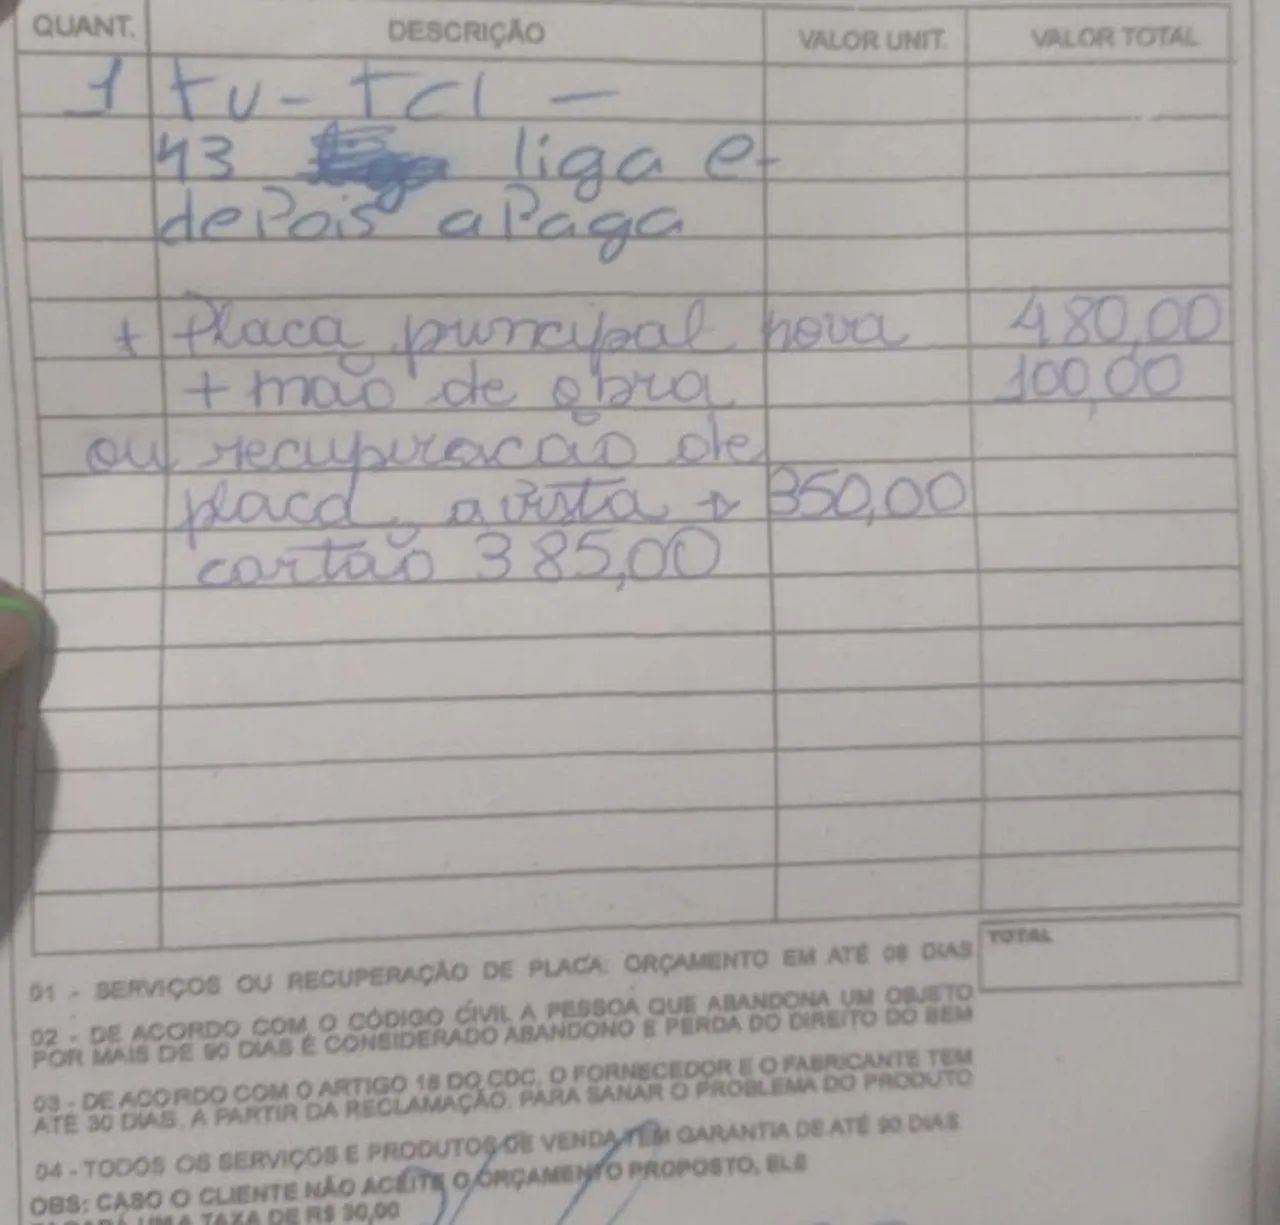 QUANT. DESCRIÇÃO VALOR UNIT. VALOR TOTAL
1 tv - TCl -
43 liga e
dePois aPaga
+ Placa principal nova 480,00
+ mão de obra 100,00
ou recuperacão de
placa, a vista + 350,00
cartão 385,00
TOTAL
01 - SERVIÇOS OU RECUPERAÇÃO DE PLACA: ORÇAMENTO EM ATÉ 08 DIAS
02 - DE ACORDO COM O CÓDIGO CÍVIL A PESSOA QUE ABANDONA UM OBJETO
POR MAIS DE 90 DIAS É CONSIDERADO ABANDONO E PERDA DO DIREITO DO BEM
03 - DE ACORDO COM O ARTIGO 18 DO CDC, O FORNECEDOR E O FABRICANTE TEM
ATÉ 30 DIAS, A PARTIR DA RECLAMAÇÃO, PARA SANAR O PROBLEMA DO PRODUTO
04 - TODOS OS SERVIÇOS E PRODUTOS DE VENDA TEM GARANTIA DE ATÉ 90 DIAS
OBS: CASO O CLIENTE NÃO ACEITE O ORÇAMENTO PROPOSTO, ELE
PAGARÁ UMA TAXA DE R$ 30,00